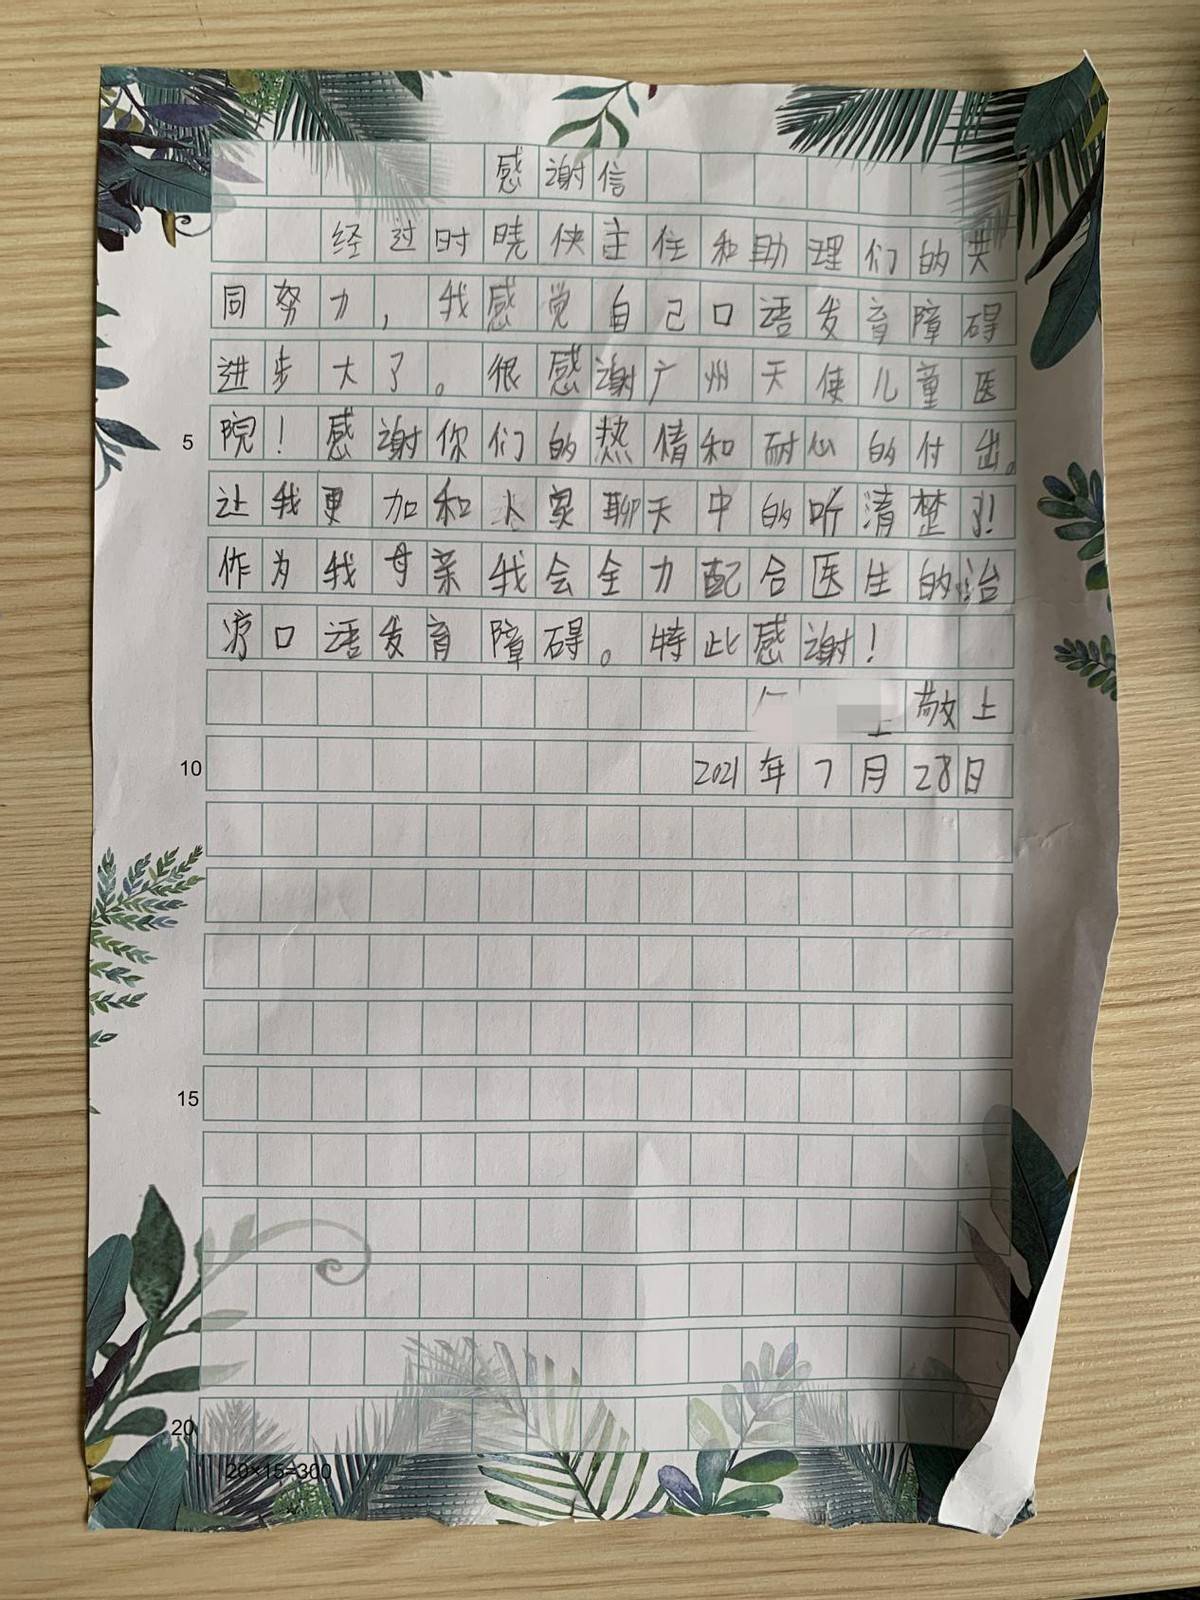 感谢信
经过时晓侠主任和助理们的共
同努力，我感觉自己口语发育障碍
进步大了。很感谢广州天使儿童医
院！感谢你们的热情和耐心的付出。
让我更加和人家聊天中的听清楚了！
作为我母亲我会全力配合医生的治
疗口语发育障碍。特此感谢！
敬上
2021年7月28日
5
10
15
20
20×15=300